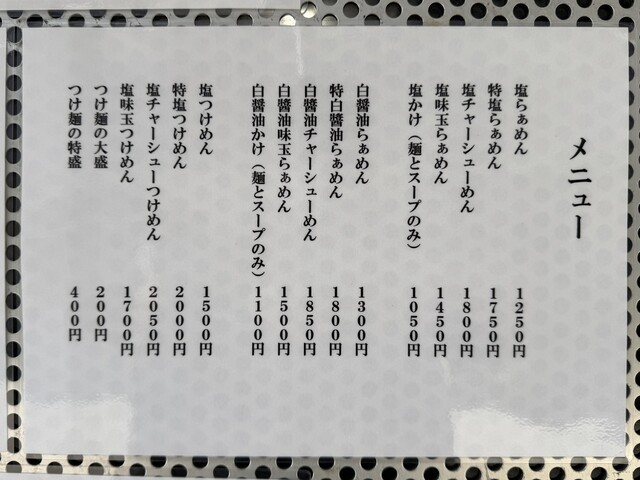 メニュー
塩らぁめん 1250円
特塩らぁめん 1750円
塩チャーシューめん 1800円
塩味玉らぁめん 1450円
塩かけ（麺とスープのみ） 1050円
白醤油らぁめん 1300円
特白醬油らぁめん 1800円
白醬油チャーシューめん 1850円
白醬油味玉らぁめん 1500円
白醤油かけ（麺とスープのみ） 1100円
塩つけめん 1500円
特塩つけめん 2000円
塩チャーシューつけめん 2050円
塩味玉つけめん 1700円
つけ麺の大盛 200円
つけ麺の特盛 400円